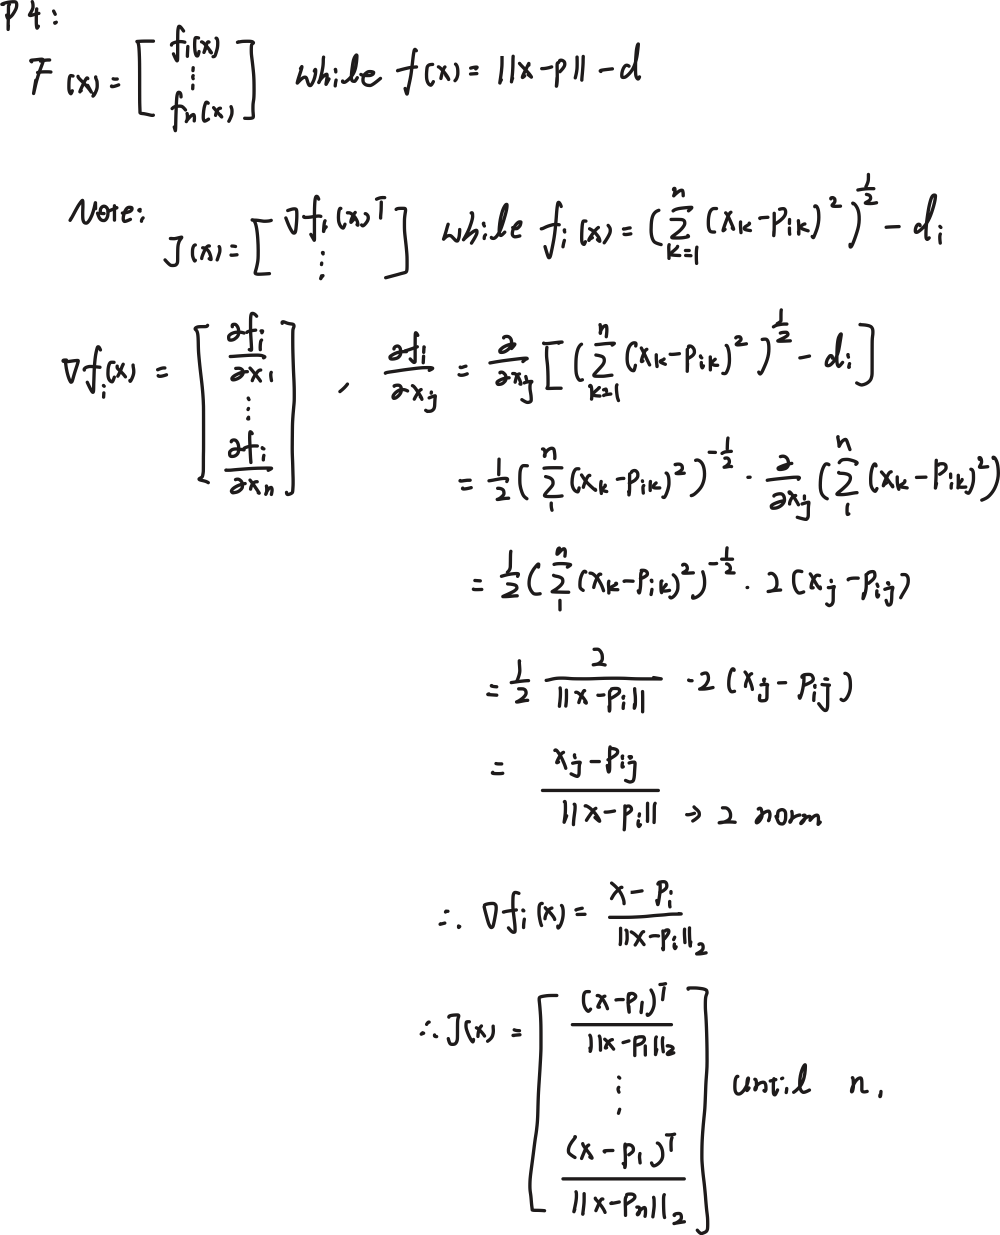 P4:
F(x) = [ f₁(x) ⋮ fₙ(x) ] while f(x) = ||x-p|| - d
Note: J(x) = [ ∇f₁(x)ᵀ ⋮ ] while fᵢ(x) = (∑_{k=1}^{n} (xₖ-pᵢₖ)²)^{1/2} - dᵢ
∇fᵢ(x) = [ ∂fᵢ/∂x₁ ⋮ ∂fᵢ/∂xₙ ] , ∂fᵢ/∂xⱼ = ∂/∂xⱼ [ (∑_{k=1}^{n} (xₖ-pᵢₖ)²)^{1/2} - dᵢ ]
= 1/2 (∑_{1}^{n} (xₖ-pᵢₖ)²)^{-1/2} · ∂/∂xⱼ (∑_{1}^{n} (xₖ-pᵢₖ)²)
= 1/2 (∑_{1}^{n} (xₖ-pᵢₖ)²)^{-1/2} · 2(xⱼ-pᵢⱼ)
= 1/2 2/||x-pᵢ|| · 2(xⱼ-pᵢⱼ)
= (xⱼ-pᵢⱼ)/||x-pᵢ|| → 2 norm
∴ ∇fᵢ(x) = (x-pᵢ)/||x-pᵢ||₂
∴ J(x) = [ (x-p₁)ᵀ/||x-p₁||₂ ⋮ (x-p₁)ᵀ/||x-pₙ||₂ ] until n.